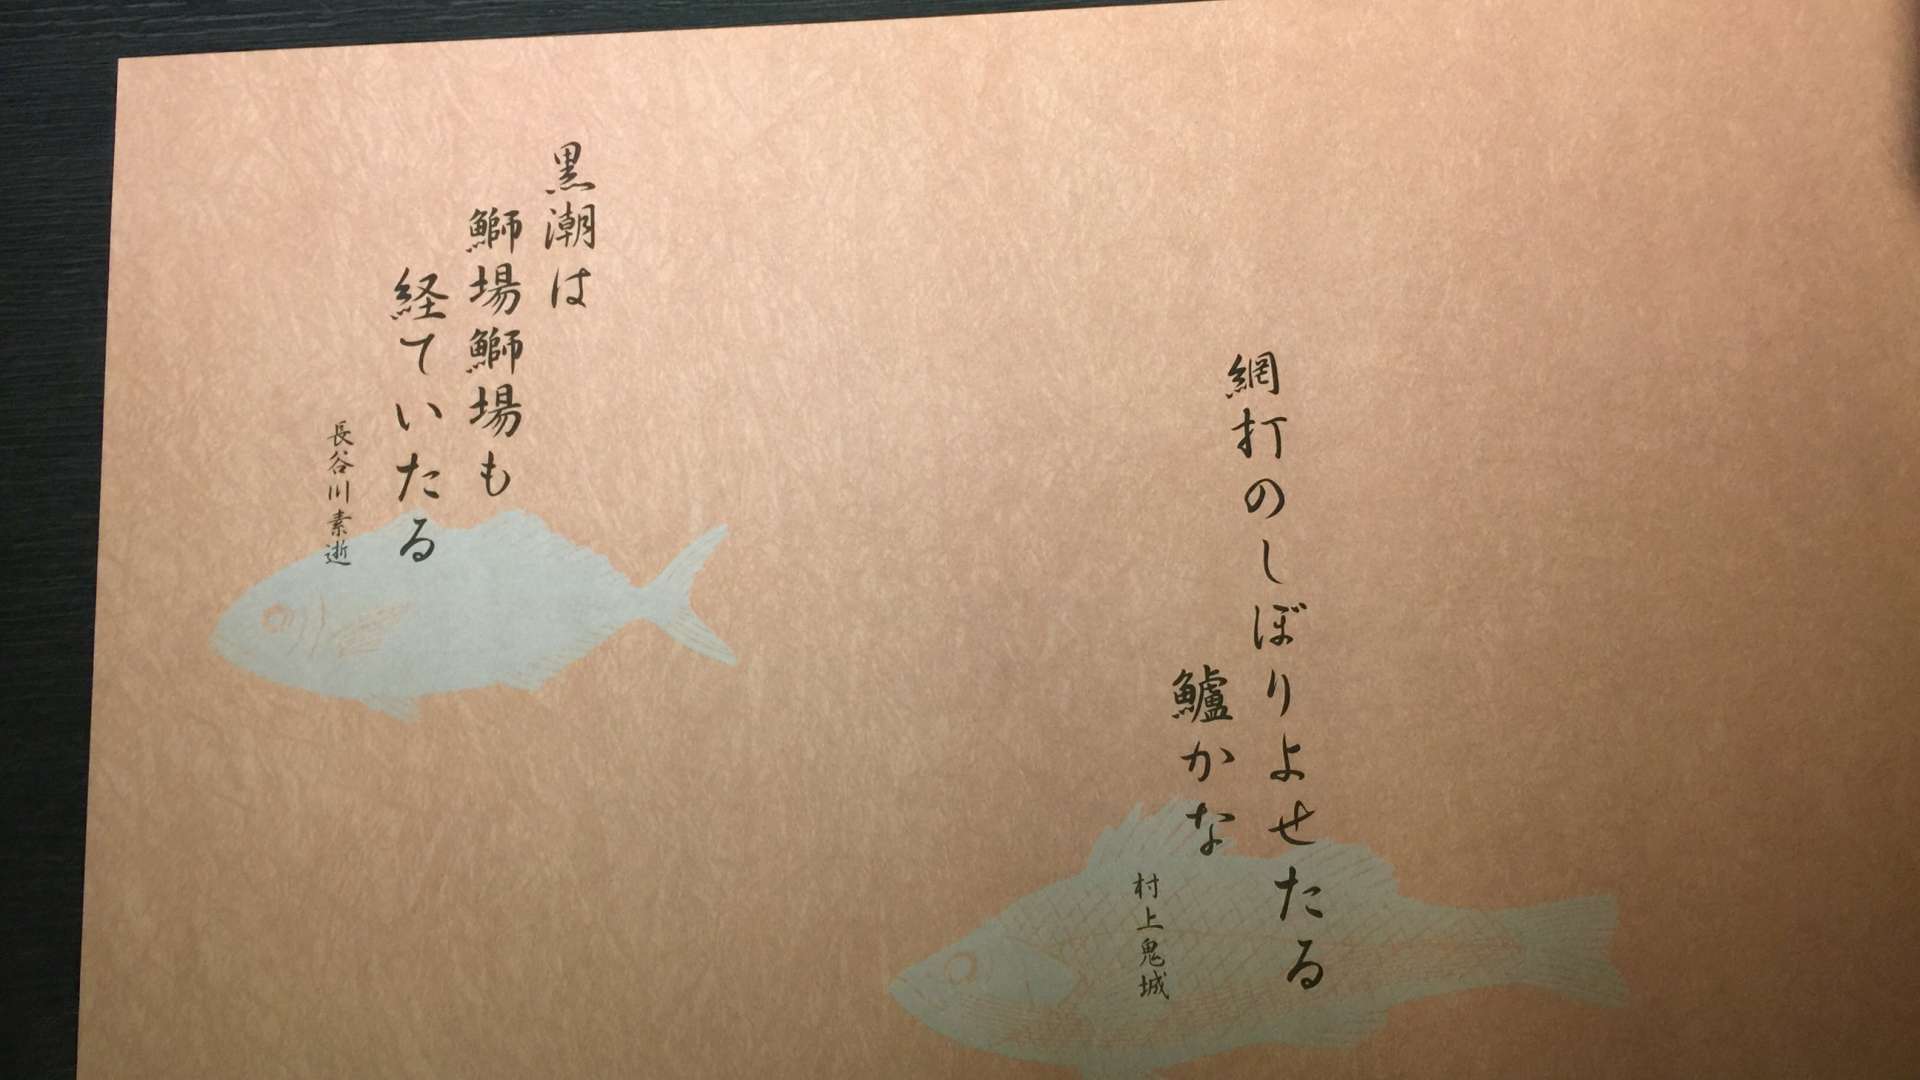 網打のしぼりよせたる
鱸かな
村上鬼城
黒潮は
鰤場鰤場も
経ていたる
長谷川素逝